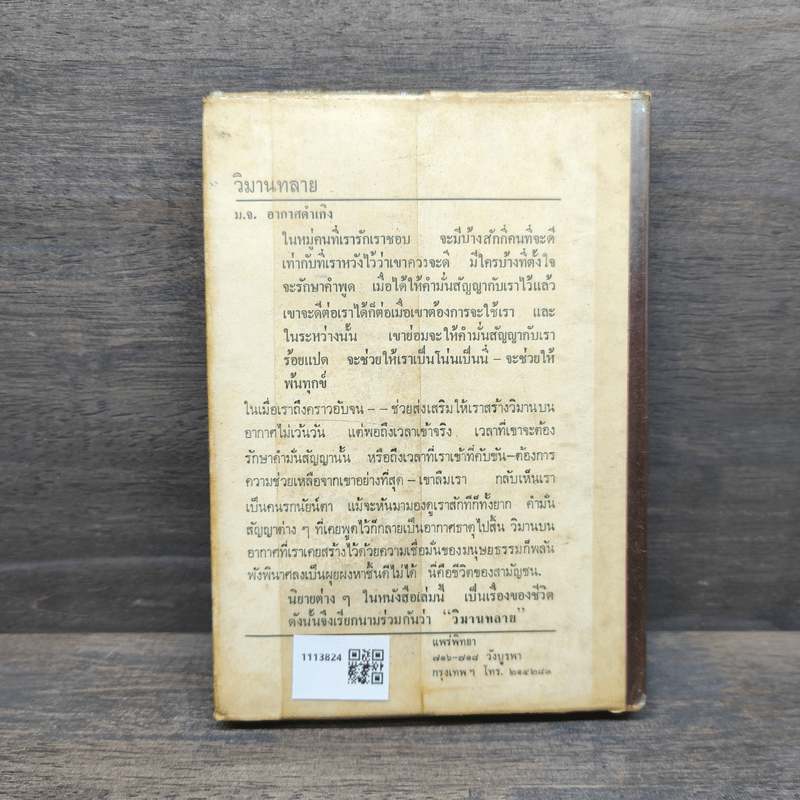 วิมานทลาย
ม.จ. อากาศดำเกิง
ในหมู่คนที่เรารักเราชอบ จะมีบ้างสักกี่คนที่จะดี
เท่ากับที่เราหวังไว้ว่าเขาควรจะดี มีใครบ้างที่ตั้งใจ
จะรักษาคำพูด เมื่อได้ให้คำมั่นสัญญากับเราไว้แล้ว
เขาจะดีต่อเราได้ก็ต่อเมื่อเขาต้องการจะใช้เรา และ
ในระหว่างนั้น เขาย่อมจะให้คำมั่นสัญญากับเรา
ร้อยแปด จะช่วยให้เราเป็นโน่นเป็นนี่ – จะช่วยให้
พ้นทุกข์
ในเมื่อเราถึงคราวอับจน – – ช่วยส่งเสริมให้เราสร้างวิมานบน
อากาศไม่เว้นวัน แต่พอถึงเวลาเข้าจริง เวลาที่เขาจะต้อง
รักษาคำมั่นสัญญานั้น หรือถึงเวลาที่เราเข้าที่คับขัน–ต้องการ
ความช่วยเหลือจากเขาอย่างที่สุด – เขาลืมเรา กลับเห็นเรา
เป็นคนรกนัยน์ตา แม้จะหันมามองดูเราสักทีก็ทั้งยาก คำมั่น
สัญญาต่าง ๆ ที่เคยพูดไว้ก็กลายเป็นอากาศธาตุไปสิ้น วิมานบน
อากาศที่เราเคยสร้างไว้ด้วยความเชื่อมั่นของมนุษยธรรมก็พลัน
พังพินาศลงเป็นผุยผงหาชิ้นดีไม่ได้ นี่คือชีวิตของสามัญชน.
นิยายต่าง ๆ ในหนังสือเล่มนี้ เป็นเรื่องของชีวิต
ดังนั้นจึงเรียกนามร่วมกันว่า “วิมานทลาย”
1113824
แพร่พิทยา
๗๑๖–๗๑๘ วังบูรพา
กรุงเทพ ฯ โทร. ๒๑๔๒๘๓